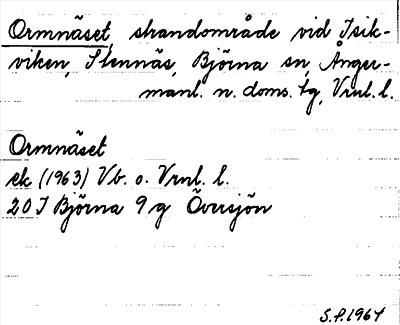 Ormnäset, strandområde vid Isik-
viken, Stennäs, Björna sn, Ånger-
manl. n. doms. tg, Vrnl. l.
Ormnäset
ek (1963) Vb. o. Vrnl. l.
20 I Björna 9 g Översjön
S.P. 1964